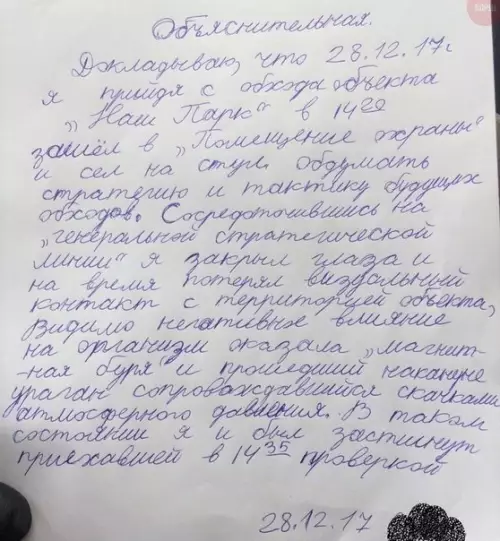 Объяснительная.
Докладываю, что 28.12.17г.
я прийдя с обхода объекта
„Наш Парк“ в 14 20
зашёл в „Помещение охраны“
и сел на стул обдумать
стратегию и тактику будущих
обходов. Сосредоточившись на
„генеральной стратегической
линии“ я закрыл глаза и
на время потерял визуальный
контакт с территорией объекта,
видимо негативное влияние
на организм оказала „магнит-
-ная буря“ и прошедший накануне
ураган сопровождавшийся скачками
атмосферного давления. В таком
состоянии я и был застигнут
приехавшей в 14 35 проверкой
28.12.17